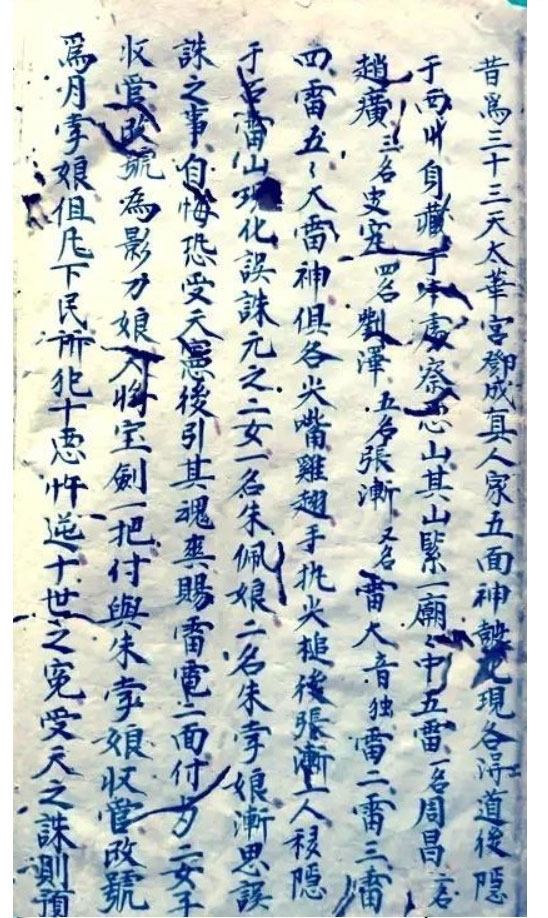 昔為三十三天太華宮鄧成真人家五面神鼓化現各得道後隱
于西州自藏于中處察惡山其山緊一廟〻中五雷一名周昌二名
趙廣三名史定四名劉澤五名張漸又名雷大音独雷二雷三雷
四雷五〻大雷神俱各尖嘴雞翅手执火槌後張漸一人移隱
于石雷山巧化誤誅元之二女一名朱佩娘二名朱孛娘漸思誤
誅之事自悔恐受天憲後引其魂與賜雷電二面付力二女子
收管改號為影力娘又將宝劍一把付與朱孛娘收管改號
為月孛娘但凡下民所犯十惡忤逆十世之冤受天之誅測預